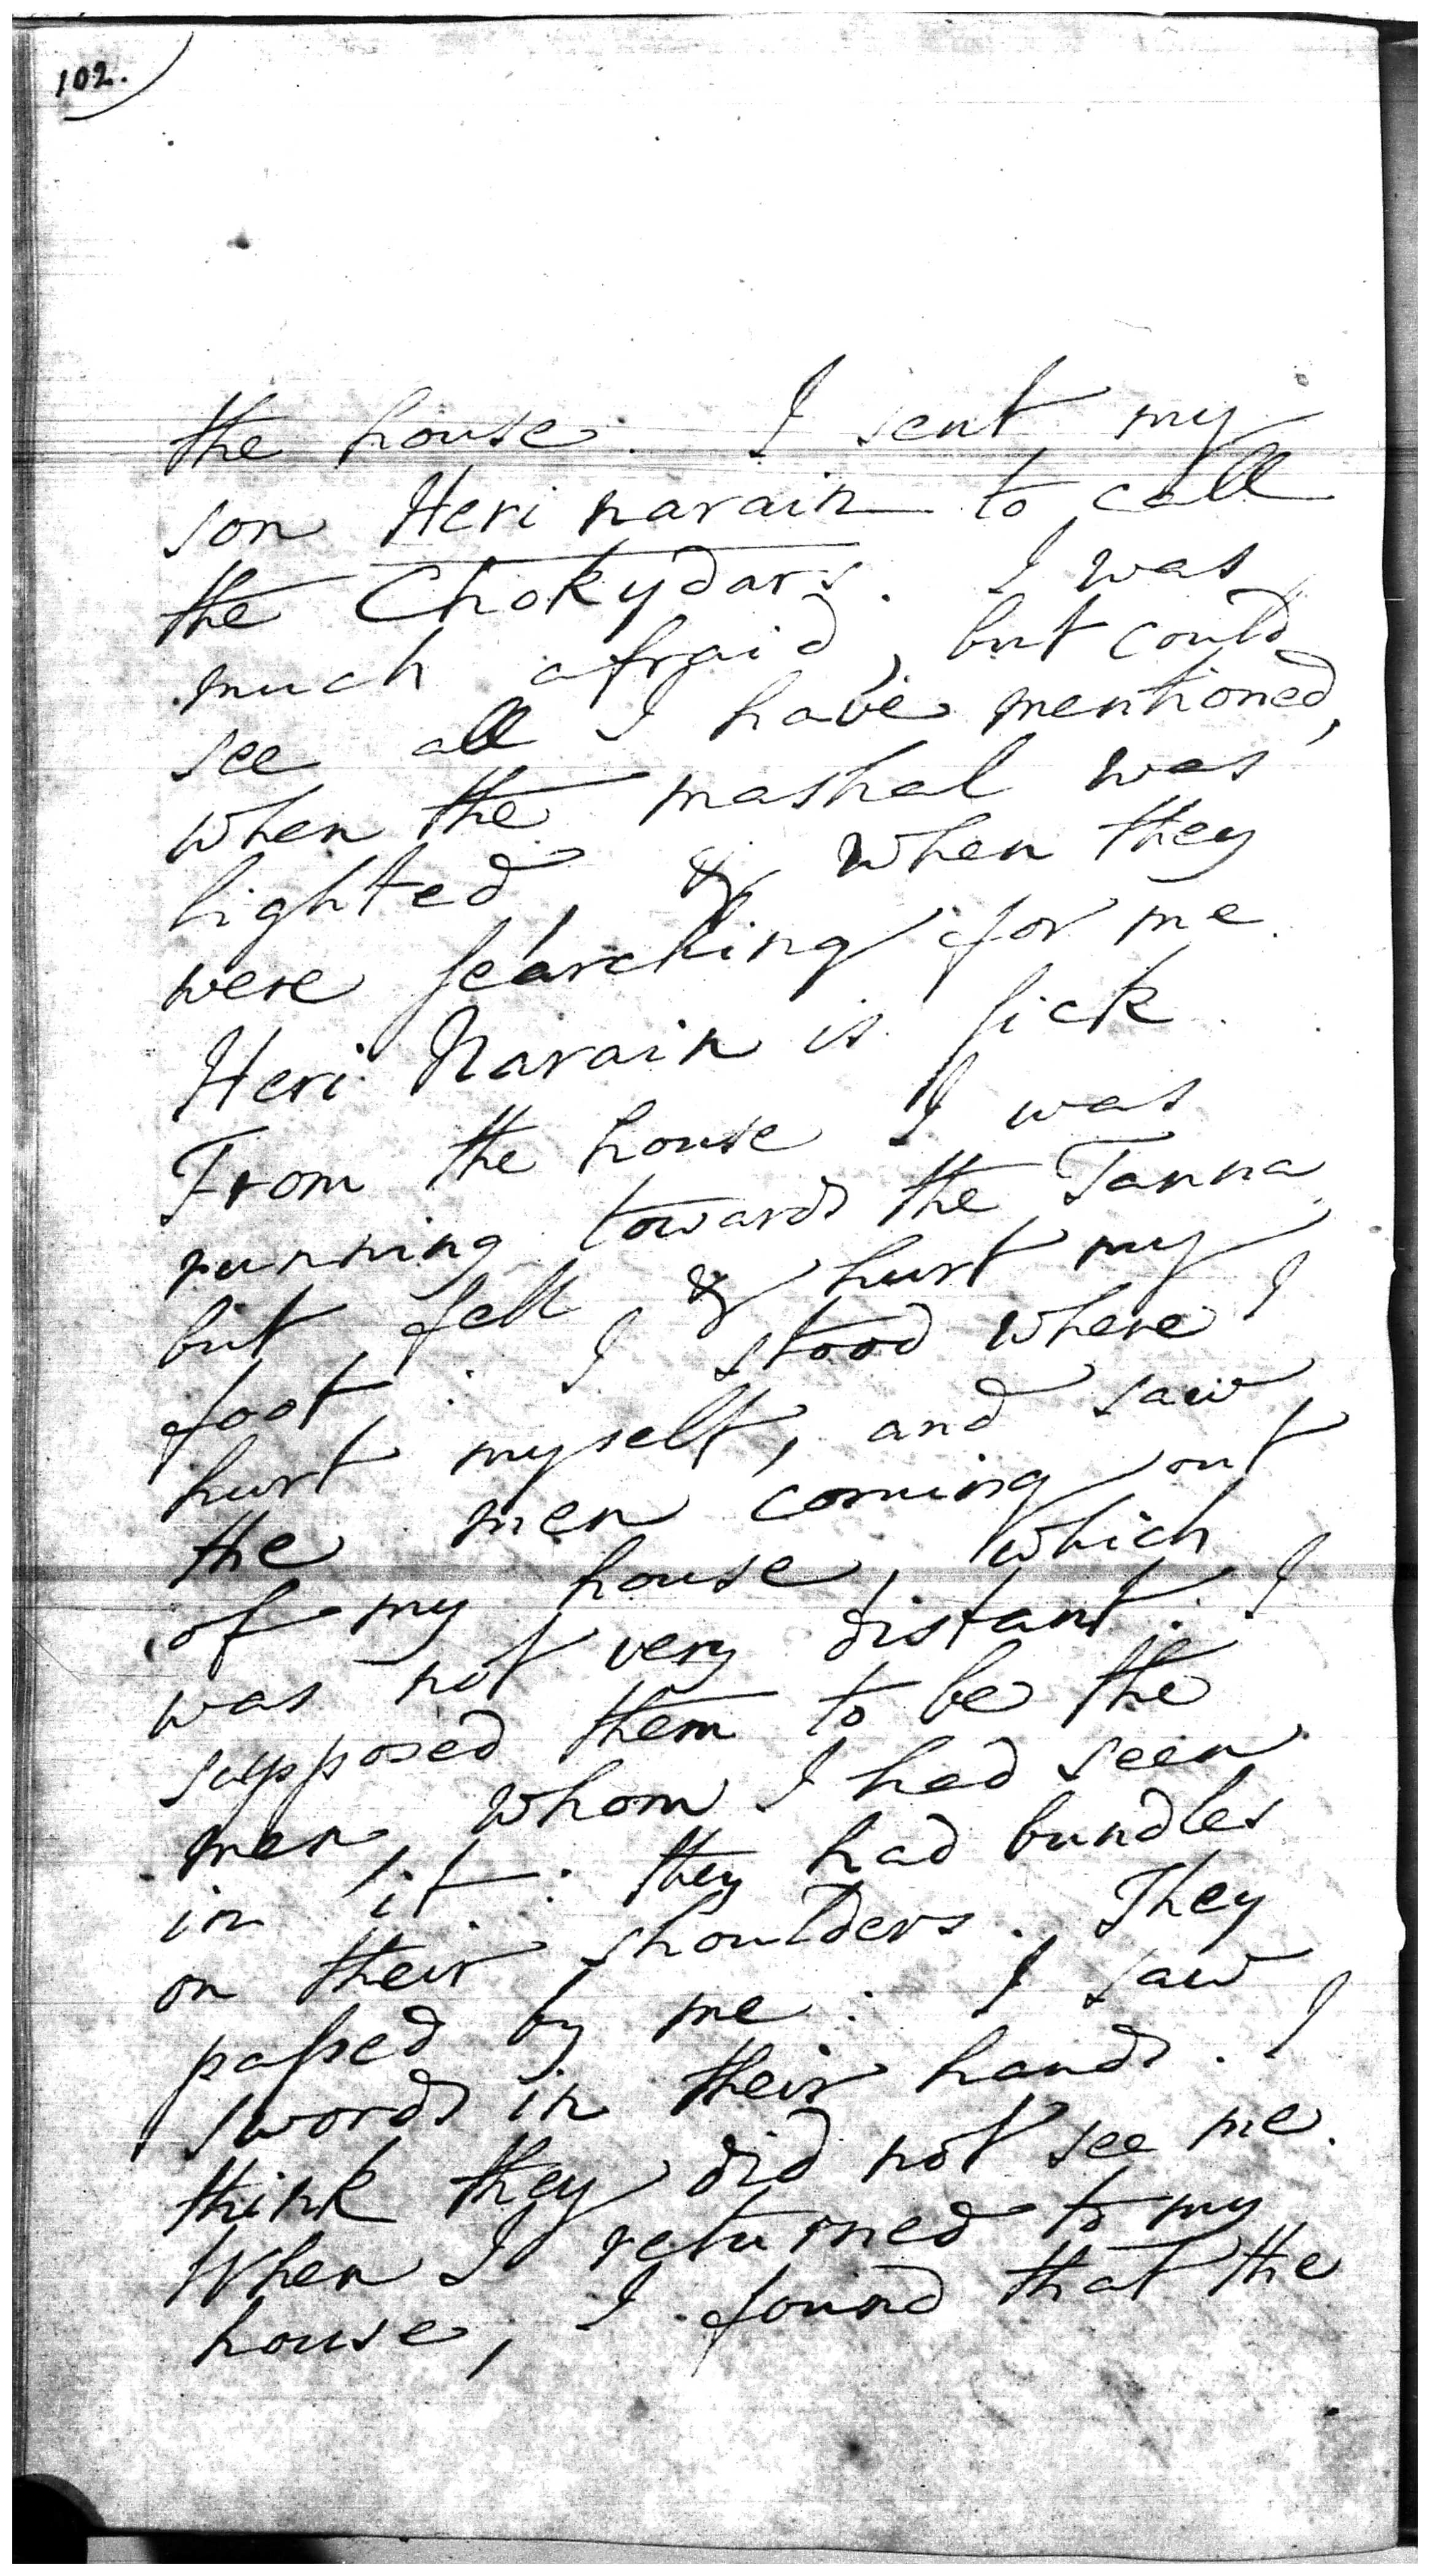 102.
the house. I sent my
son Heri narain to call
the Chokydars. I was
much afraid, but could
see all I have mentioned,
when the mashal was
lighted, & when they
were searching for me.
Heri Narain is sick.
From the house I was
running towards the Tanna
but fell & hurt my
foot: I stood where I
hurt myself, and saw
the men coming out
of my house, which
was not very distant. I
supposed them to be the
men, whom I had seen
in it: they had bundles
on their shoulders. They
passed by me: I saw
swords in their hands. I
think they did not see me.
When I returned to my
house, I found that the